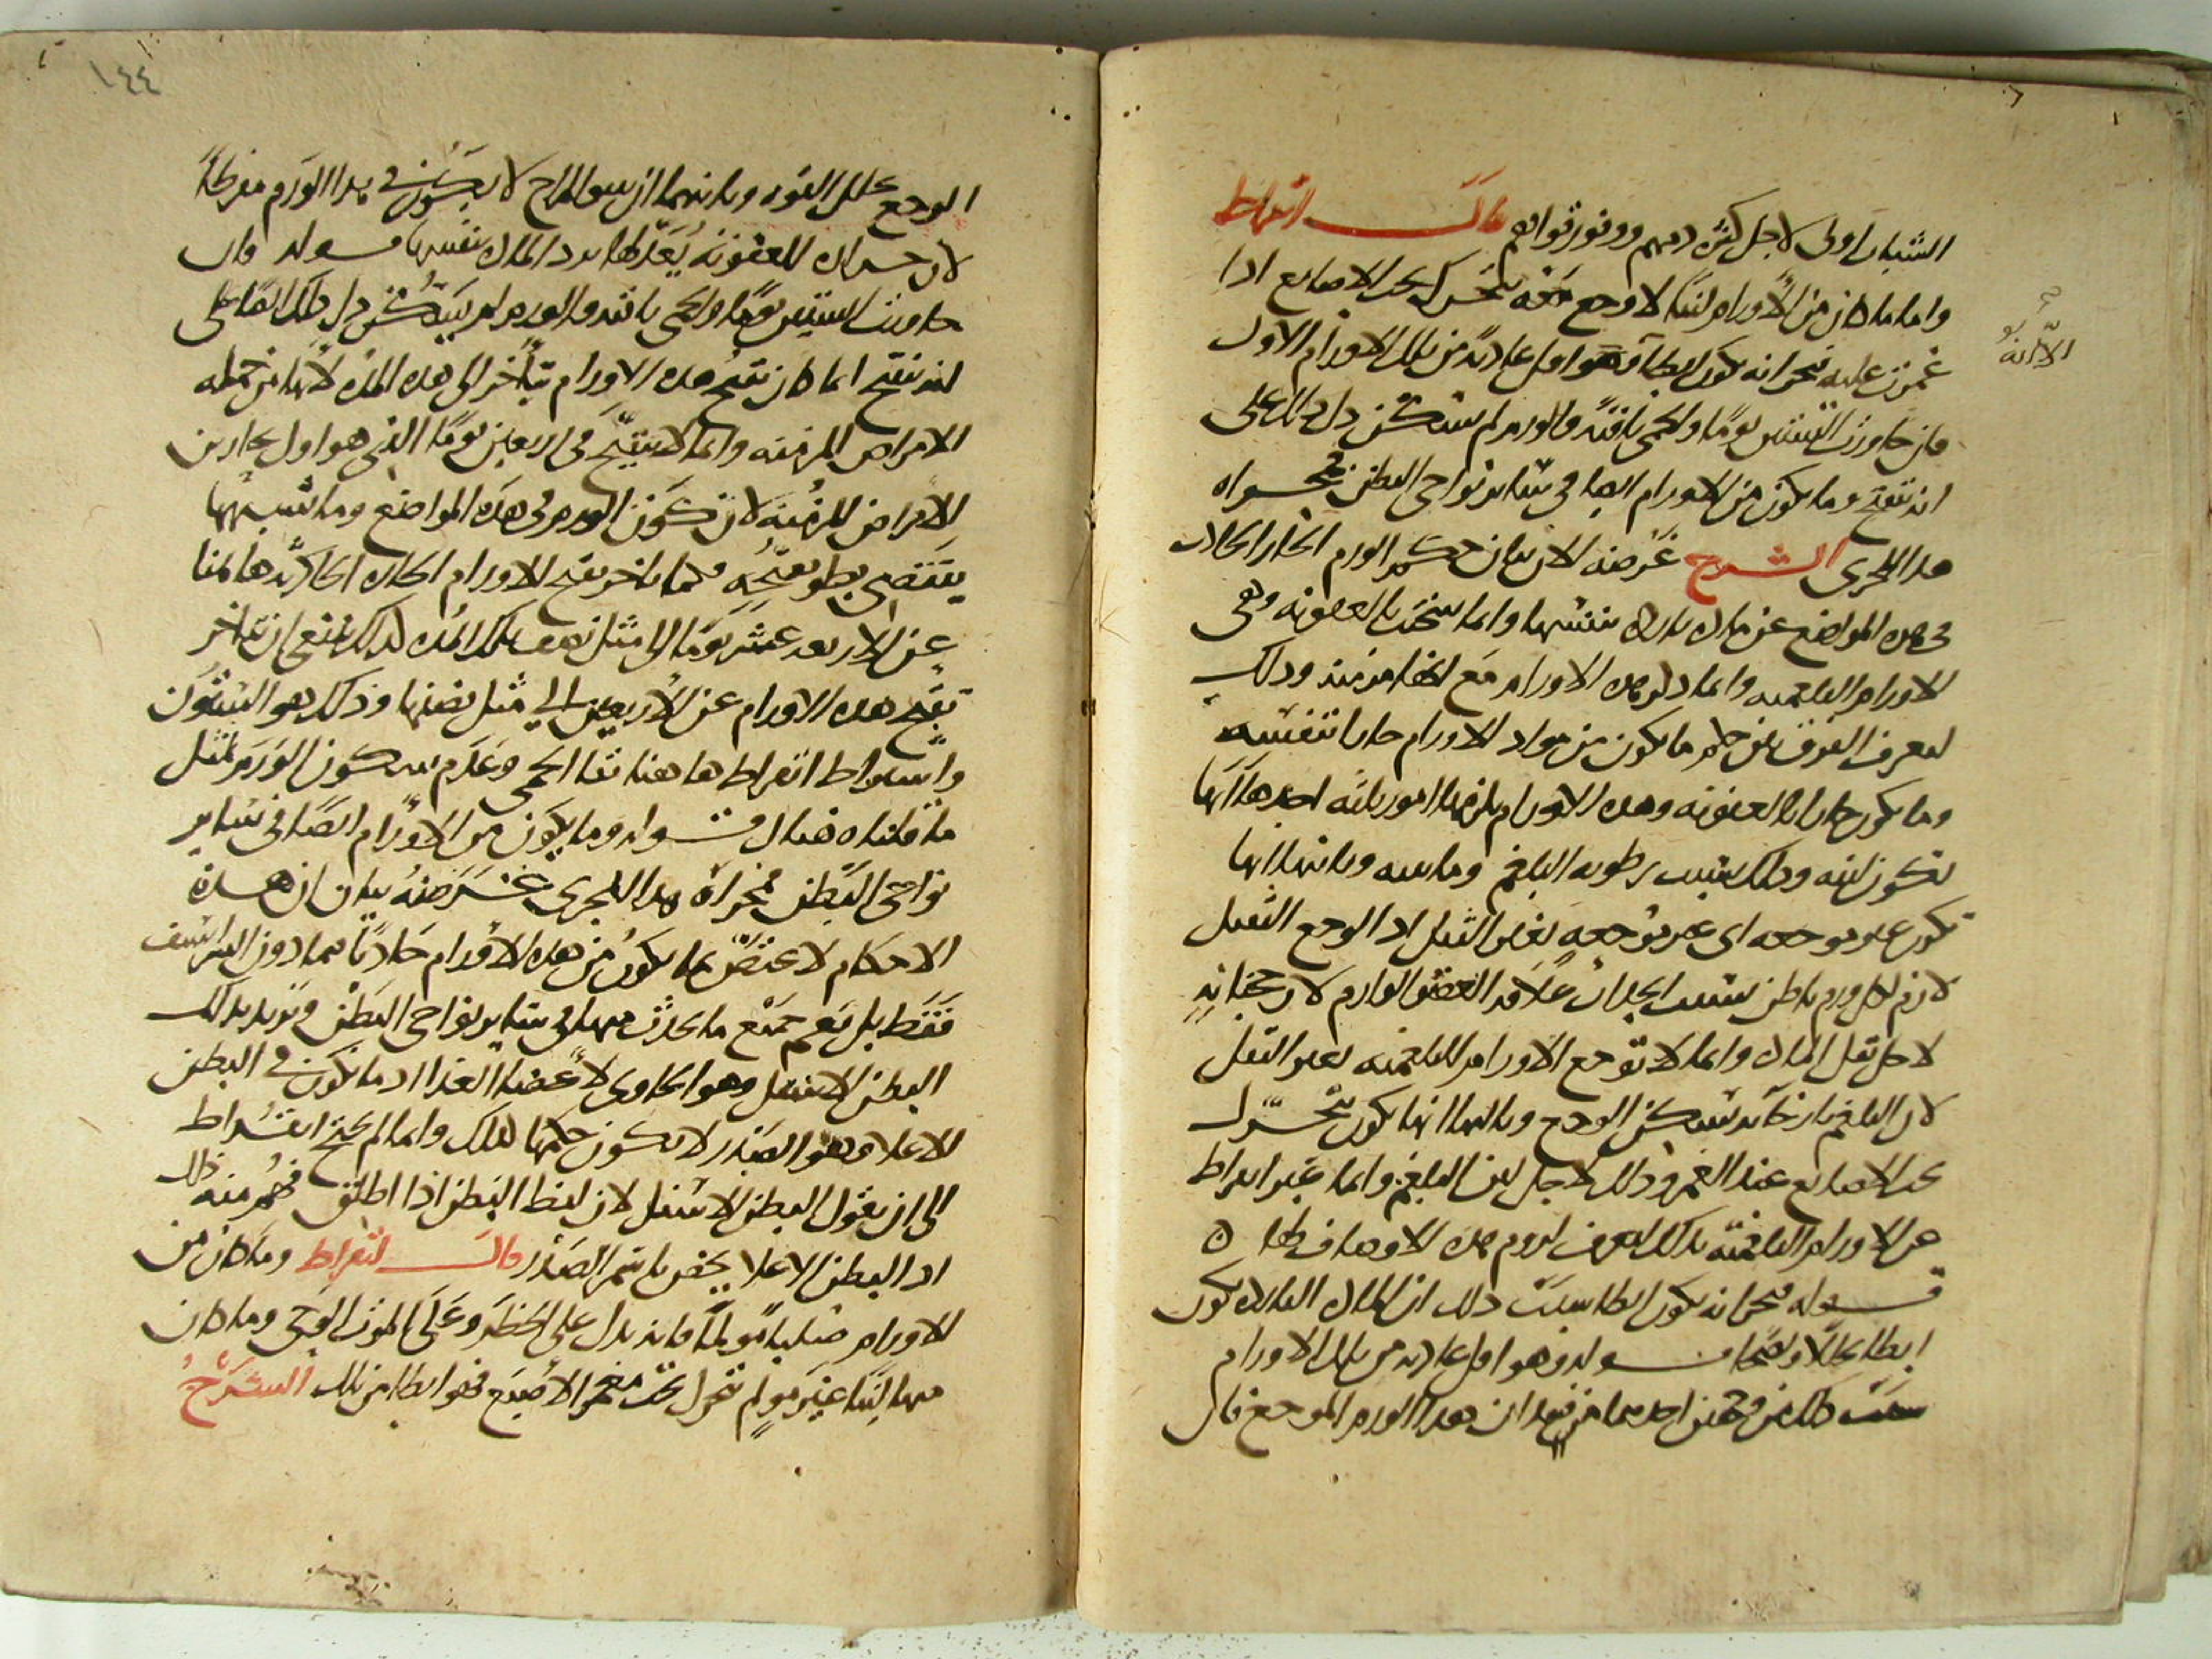 الشباب اولى لاجل كثرة دمهم ووفور قواهم قال ابقراط
واما ما كان من الاورام لينا لا وجع معه يتحرك تحت الاصابع اذا
غمزت عليه فبحرانه يكون ابطا وهو اقل عادية من تلك الاورام الاول
الا انه
فان جاوزت الستين يوما والحمى باقية والورم لم يسكن دل ذلك على
انه تقيح وما يكون من الاورام ايضا في سائر نواحي البطن فمجراه
هذا المجرى الشرح غرضه الان بيان حكم الورم الحار الحادث
في هذه المواضع عن مادة باردة بنفسها وانما سخنت بالعفونة وهي
الاورام البلغمية وانما ذكر هذه الاورام مع انها مزمنة وذلك
ليعرف الفرق بين حكم ما يكون من مواد الاورام حارا بنفسه
وما يكون حارا بالعفونة وهذه الاورام يلزمها امور ثلثة احدها انها
تكون لينة وذلك بسبب رطوبة البلغم ومائيته وثانيها انها
تكون غير موجعة اى غير موجعة بغير الثقل اذ الوجع الثقيل
لازم لكل ورم باطن بسبب انجذاب علاقة العضو الوارم لا رجحنانه
لاجل ثقل المادة وانما لا توجع الاورام البلغمية بغير الثقل
لان البلغم بارخائه يسكن الوجع وثالثها انها تكون تتحرك
تحت الاصابع عند الغمز وذلك لاجل لين البلغم وانما عبر ابقراط
عن الاورام البلغمية بذلك ليعرف لزوم هذه الاوصاف لها ه
قوله فبحرانه يكون ابطا سبب ذلك ان المادة الباردة تكون
ابطا تحللا ونضجا قوله وهو اقل عادية من تلك الاورام
سبب ذلك من وجهين احدهما من فقدان هذا الورم الموجع فان
١٤٤
الوجع يحلل القوة وثانيهما ان سوء المزاج لا يكون في هذا الورم مفرطا
لان حرارة العفونة يعدلها برد المادة بنفسها قوله فان
جاوزت الستين يوما والحمى باقية والورم لم يسكن دل ذلك ايضا على
انه تقيح انما كان تقيح هذه الاورام يتاخر الى هذه المدة لانها من جملة
الامراض المزمنة وانما لا يتقيح في اربعين يوما الذى هو اول بحارين
الامراض المزمنة لان تكون الورم في هذه المواضع وما شبهها
يقتضي بطو تقيحه فكما تاخر تقيح الاورام الحارة الحادة هاهنا
عن الاربعة عشر يوما الى مثل نصف تلك المدة كذلك ينبغي ان يتاخر
تقيح هذه الاورام عن الاربعين الى مثل نصفها وذلك هو الستون
واشتراط ابقراط هاهنا بقا الحمى وعدم سكون الورم لمثل
ما قلناه هناك قوله وما يكون من الاورام ايضا في سائر
نواحي البطن فمجراه هذا المجرى غرضه بيان ان هذه
الاحكام لا تختص بما يكون من هذه الاورام حادثا فيما دون الشراسيف
فقط بل يعم جميع ما يحدث منها في سائر نواحي البطن ويريد بذلك
البطن الاسفل وهو الحاوى لاعضاء الغذا اذ ما يكون في البطن
الاعلا وهو الصدر لا يكون حكمها كذلك وانما لم يحتج ابقراط
الى ان يقول البطن الاسفل لان لفظ البطن اذا اطلق فهم منه ذلك
اذ البطن الاعلا يخص باسم الصدر قال ابقراط وما كان من
الاورام صلبا مولما فانه يدل على الخطر وعلى الموت الوحي وما كان
منها لينا غير مولم تحرك تحت مغمز الاصبع فهو ابطا من تلك الشرح